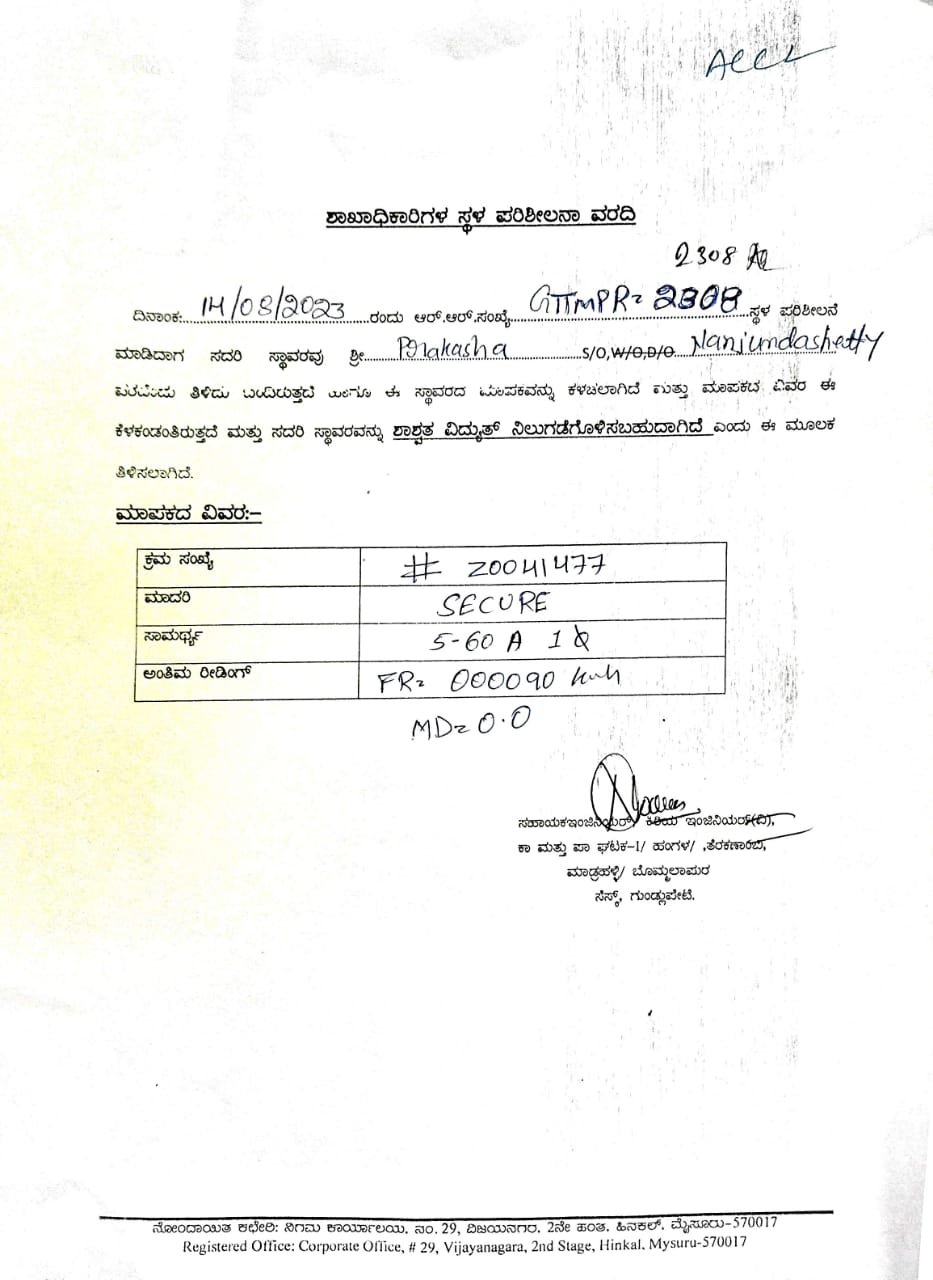 ಶಾಖಾಧಿಕಾರಿಗಳ ಸ್ಥಳ ಪರಿಶೀಲನಾ ವರದಿ
2308
ದಿನಾಂಕ: 14/08/2023 ರಂದು ಆರ್.ಆರ್.ಸಂಖ್ಯೆ GTTMPR= 2308 ಸ್ಥಳ ಪರಿಶೀಲನೆ
ಮಾಡಿದಾಗ ಸದರಿ ಸ್ಥಾವರವು ಶ್ರೀ. Prakasha S/O,W/O,D/O Nanjundashetty
ತಿಳಿದು ಬಂದಿರುತ್ತದೆ ಹಾಗೂ ಈ ಸ್ಥಾವರದ ಮಾಪಕವನ್ನು ಕಳಚಲಾಗಿದೆ ಮತ್ತು ಮಾಪಕದ ವಿವರ ಈ
ಕೆಳಕಂಡಂತಿರುತ್ತದೆ ಮತ್ತು ಸದರಿ ಸ್ಥಾವರವನ್ನು ಶಾಶ್ವತ ವಿದ್ಯುತ್ ನಿಲುಗಡೆಗೊಳಿಸಬಹುದಾಗಿದೆ ಎಂದು ಈ ಮೂಲಕ
ತಿಳಿಸಲಾಗಿದೆ.
ಮಾಪಕದ ವಿವರ:–
ಕ್ರಮ ಸಂಖ್ಯೆ # Z0041477
ಮಾದರಿ SECURE
ಸಾಮರ್ಥ್ಯ 5-60 A 1 Φ
ಅಂತಿಮ ರೀಡಿಂಗ್ FR= 000090 kwh
MD= 0.0
ಸಹಾಯಕಇಂಜಿನಿಯರ್/ ಕಿರಿಯ ಇಂಜಿನಿಯರ್(ವಿ),
ಕಾ ಮತ್ತು ಪಾ ಘಟಕ-1/ ಹಂಗಳ/ ,ತೆರಕಣಾಂಬಿ,
ಮಾಡ್ರಹಳ್ಳಿ/ ಬೊಮ್ಮಲಾಪುರ
ಸೆಸ್ಕ್, ಗುಂಡ್ಲುಪೇಟೆ.
ನೋಂದಾಯಿತ ಕಛೇರಿ: ನಿಗಮ ಕಾರ್ಯಾಲಯ, ನಂ. 29, ವಿಜಯನಗರ, 2ನೇ ಹಂತ, ಹಿನಕಲ್, ಮೈಸೂರು-570017
Registered Office: Corporate Office, # 29, Vijayanagara, 2nd Stage, Hinkal, Mysuru-570017